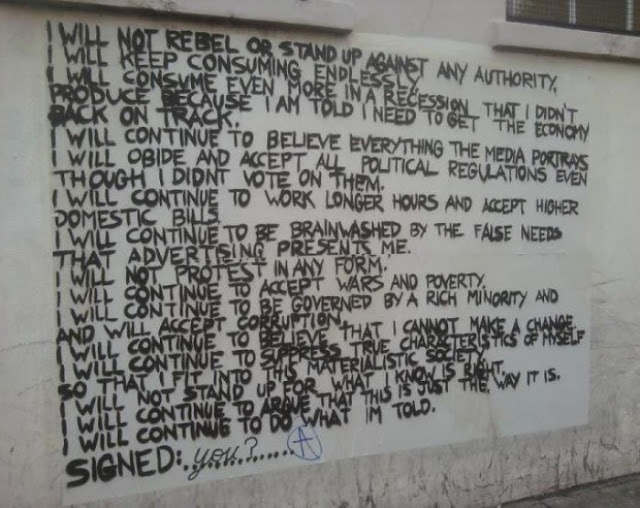 I WILL NOT REBEL OR STAND UP AGAINST ANY AUTHORITY,
I WILL KEEP CONSUMING ENDLESSLY,
I WILL CONSUME EVEN MORE IN A RECESSION THAT I DIDN'T
PRODUCE BECAUSE I AM TOLD I NEED TO GET THE ECONOMY
BACK ON TRACK.
I WILL CONTINUE TO BELIEVE EVERYTHING THE MEDIA PORTRAYS
I WILL OBIDE AND ACCEPT ALL POLITICAL REGULATIONS EVEN
THOUGH I DIDNT VOTE ON THEM.
I WILL CONTINUE TO WORK LONGER HOURS AND ACCEPT HIGHER
DOMESTIC BILLS.
I WILL CONTINUE TO BE BRAINWASHED BY THE FALSE NEEDS
THAT ADVERTISING PRESENTS ME.
I WILL NOT PROTEST IN ANY FORM.
I WILL CONTINUE TO ACCEPT WARS AND POVERTY.
I WILL CONTINUE TO BE GOVERNED BY A RICH MINORITY AND
AND WILL ACCEPT CORRUPTION.
I WILL CONTINUE TO BELIEVE THAT I CANNOT MAKE A CHANGE.
I WILL CONTINUE TO SUPPRESS TRUE CHARACTERISTICS OF MYSELF
SO THAT I FIT INTO THIS MATERIALISTIC SOCIETY.
I WILL NOT STAND UP FOR WHAT I KNOW IS RIGHT.
I WILL CONTINUE TO ARGUE THAT THIS IS JUST THE WAY IT IS.
I WILL CONTINUE TO DO WHAT IM TOLD.
SIGNED: you? ............ A